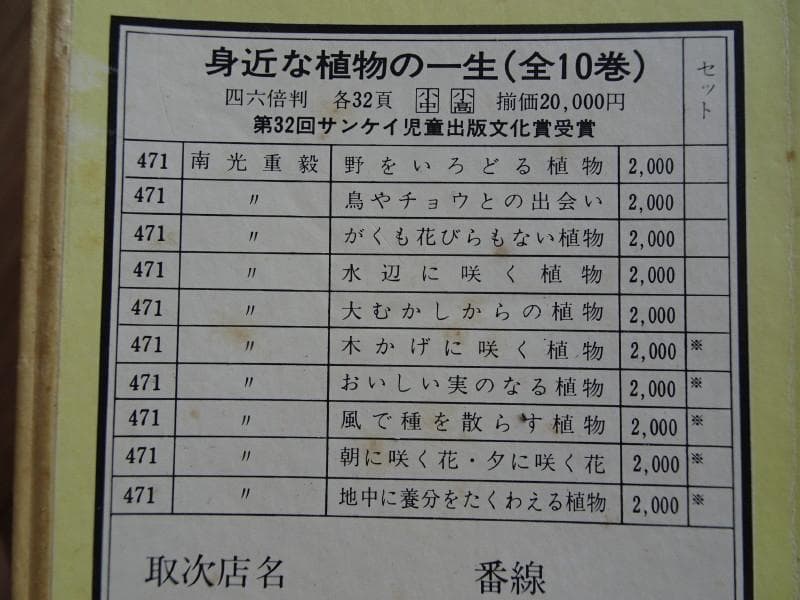 身近な植物の一生(全10巻)
セット
四六倍判 各32頁 小中 小高 揃価20,000円
第32回サンケイ児童出版文化賞受賞
471 南光重毅 野をいろどる植物 2,000
471 〃 鳥やチョウとの出会い 2,000
471 〃 がくも花びらもない植物 2,000
471 〃 水辺に咲く植物 2,000
471 〃 大むかしからの植物 2,000
471 〃 木かげに咲く植物 2,000 ※
471 〃 おいしい実のなる植物 2,000 ※
471 〃 風で種を散らす植物 2,000 ※
471 〃 朝に咲く花・夕に咲く花 2,000 ※
471 〃 地中に養分をたくわえる植物 2,000 ※
取次店名 番線